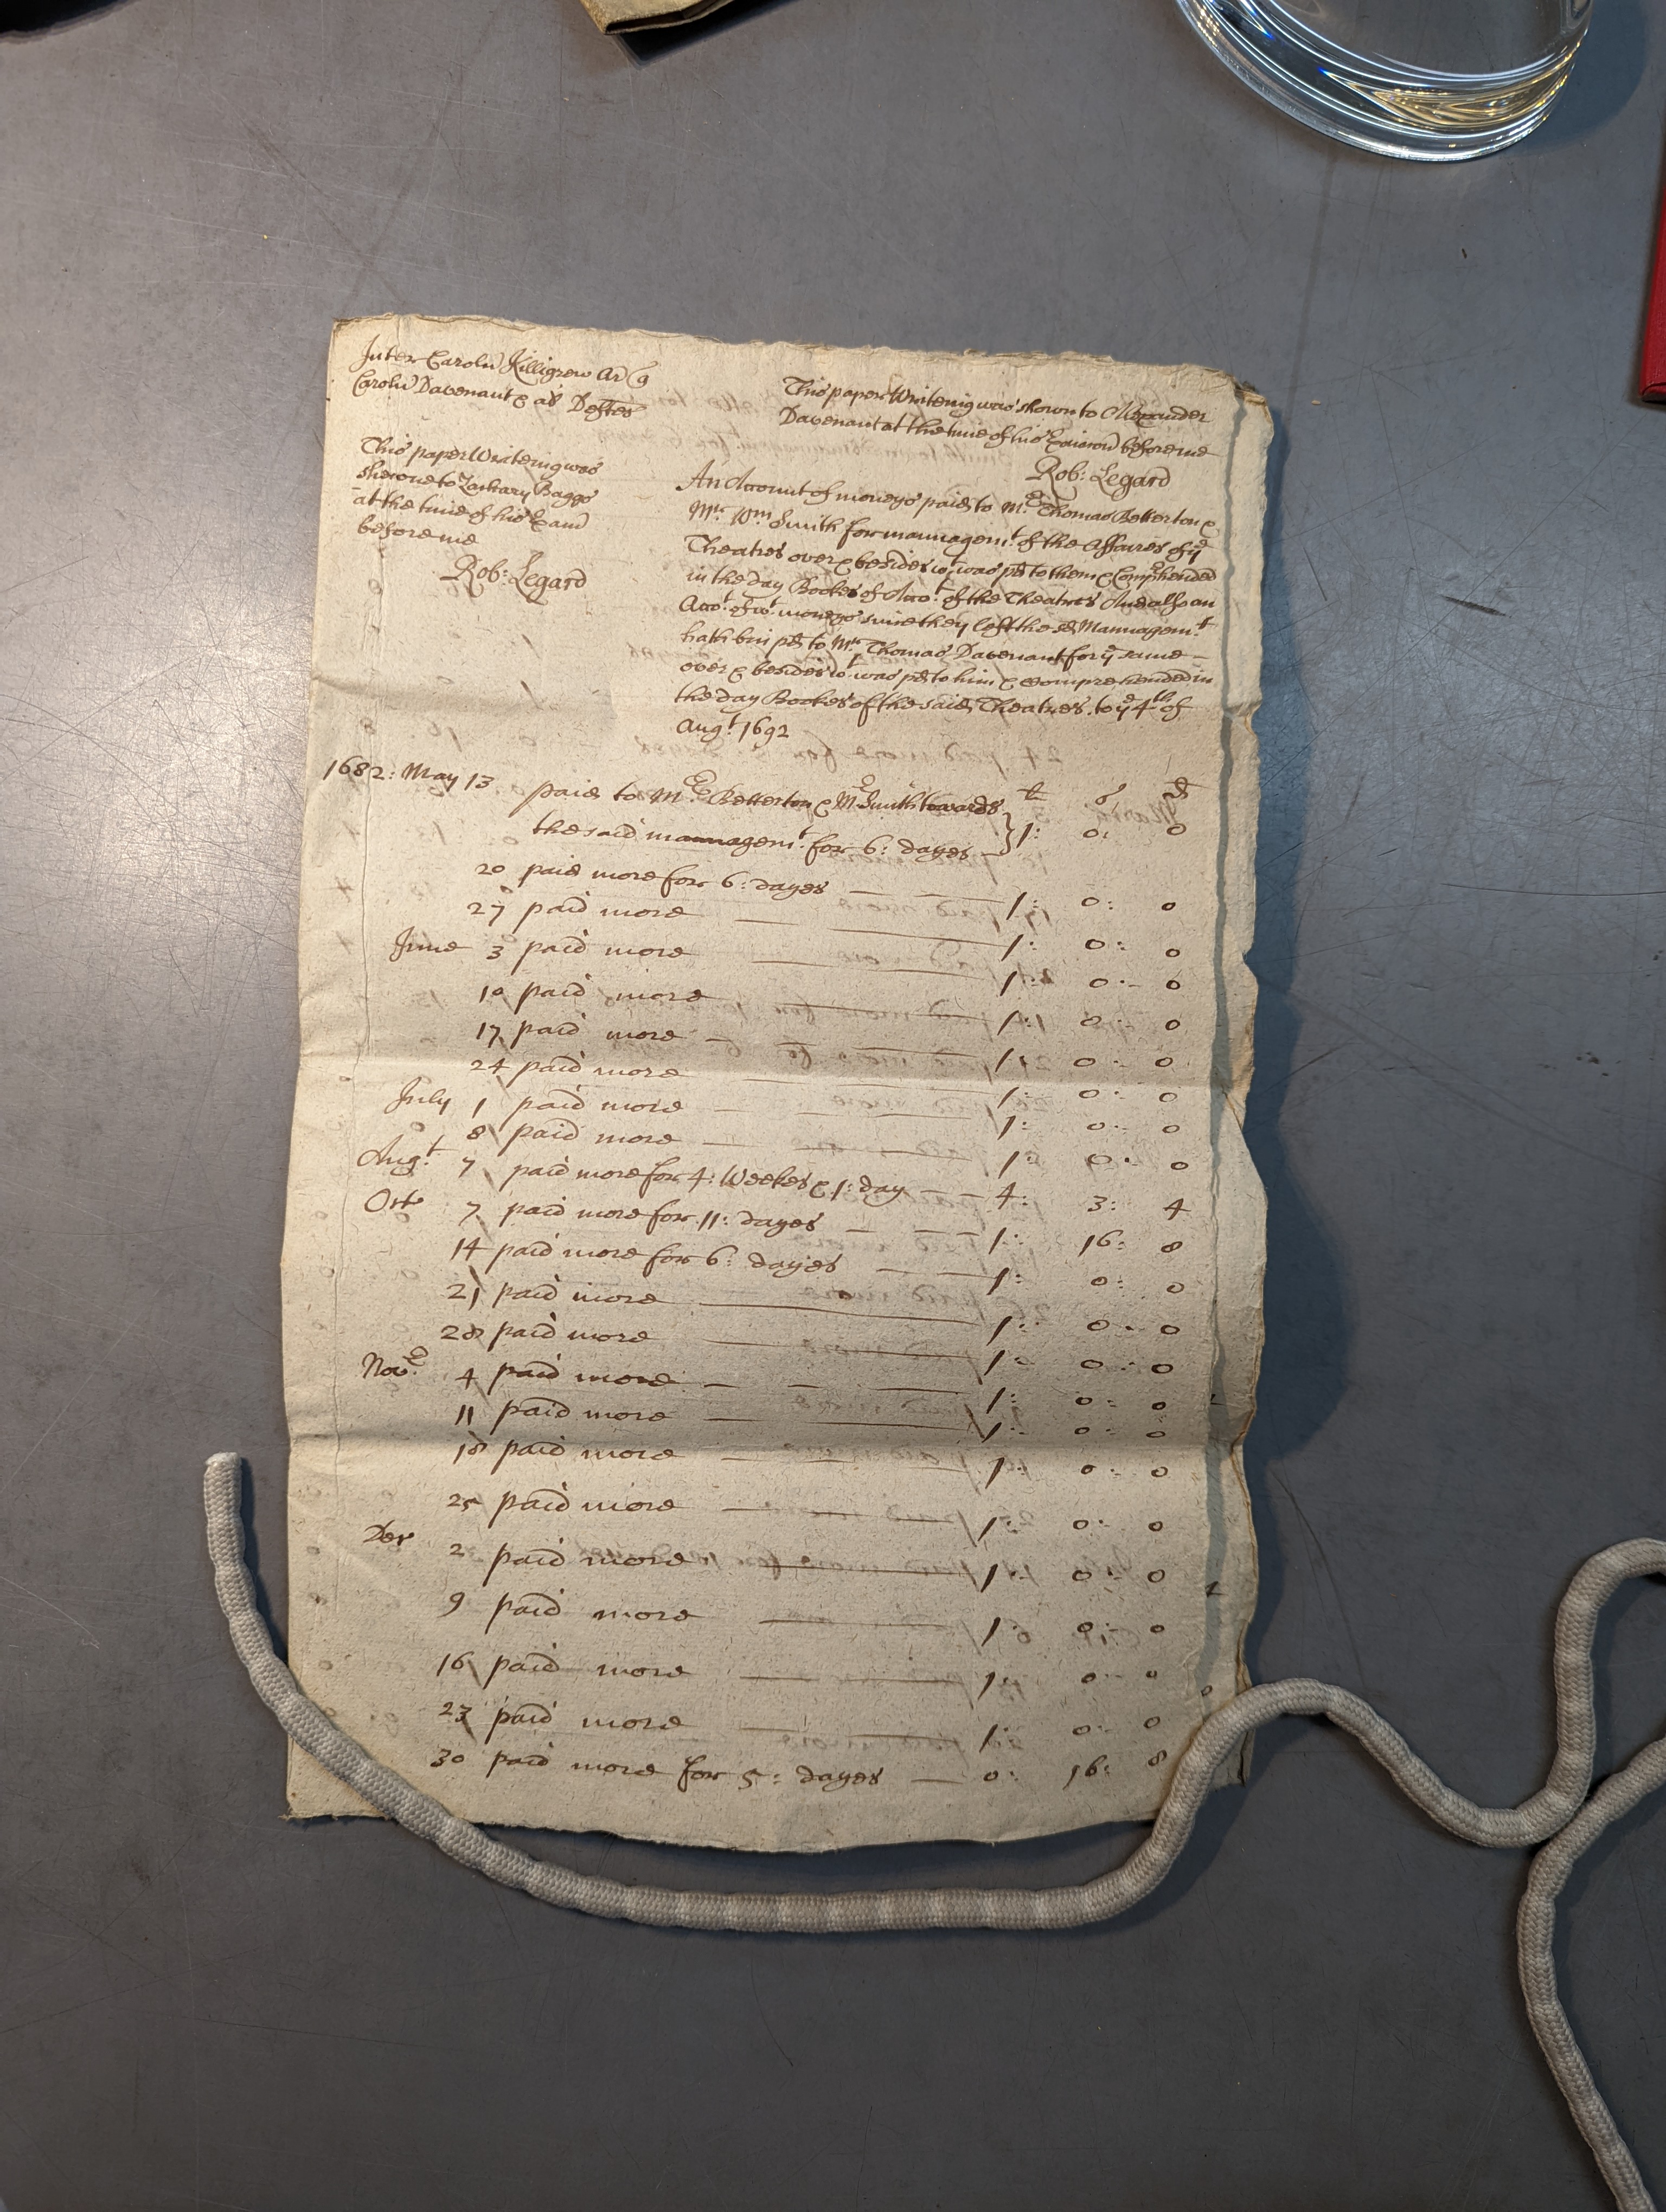 Inter Carolu Killigrew Ar Q
Carolu Davenant & als Deftes
This paper Writeing was shown to Alexander
Davenant at the time of his Exaicon before me
Rob: Legard
This paper Writeing was
shewne to Zachary Baggs
at the time of his Exam
before me
Rob: Legard
An Account of moneys paid to Mr Thomas Betterton &
Mr. Wm Smith for mannagemt. of the Affaires of ye
Theatres over & besides wt was pd to them & Comprhended
in the day Bookes of Acco.t of the Theatres And also an
Acco.t of wt. moneys since they left the sd Mannagem.t
hath bin pd to Mr. Thomas Davenant for ye same
over & besides wt was pd to him & comprehended in
the day Bookes of the said Theatres to ye 4th of
Aug.t 1692
li s d
1682: May 13 paid to Mr. Betterton & Mr Smith towards
the said managem.t for 6: dayes 1: 0: 0
20 paid more for 6: dayes — — 1: 0: 0
27 paid more — — 1: 0: 0
June 3 paid more — — 1: 0: 0
10 paid more — 1: 0: 0
17 paid more — — 1: 0: 0
24 paid more — — 1: 0: 0
July 1 paid more — — 1: 0: 0
8 paid more — — 1: 0: 0
Aug.t 7 paid more for 4: Weekes & 1: day — — 4: 3: 4
Oct 7 paid more for 11: dayes — — 1: 16: 8
14 paid more for 6: dayes — — 1: 0: 0
21 paid more — 1: 0: 0
28 paid more — 1: 0: 0
Nov.r 4 paid more — — — 1: 0: 0
11 paid more — — 1: 0: 0
18 paid more — — 1: 0: 0
25 paid more — — 1: 0: 0
Der 2 paid more — 1: 0: 0
9 paid more — — 1: 0: 0
16 paid more — — 1: 0: 0
23 paid more — — 1: 0: 0
30 paid more for 5: dayes — 0: 16: 8